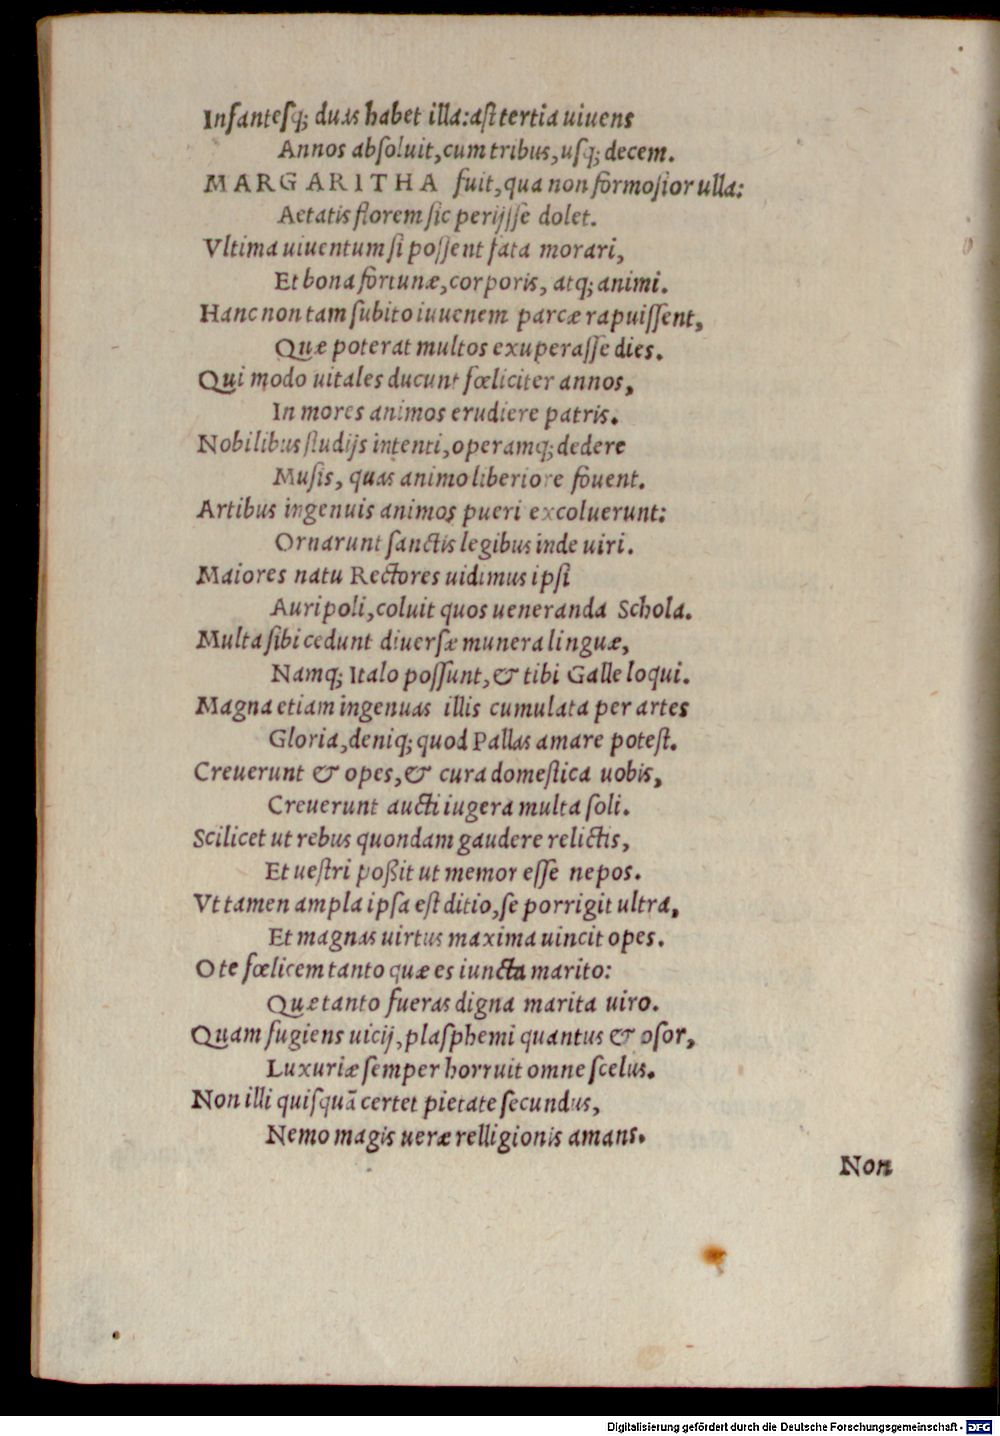 Infantesq; duas habet illa: ast tertia uiuens
Annos absoluit, cum tribus, usq; decem.
MARGARITHA fuit, qua non formosior ulla:
Aetatis florem sic perijsse dolet.
Vltima uiuentum si possent fata morari,
Et bona fortunæ, corporis, atq; animi.
Hanc non tam subito iuuenem parcæ rapuissent,
Quæ poterat multos exuperasse dies.
Qui modo uitales ducunt fœliciter annos,
In mores animos erudiere patris.
Nobilibus studijs intenti, operamq; dedere
Musis, quas animo liberiore fouent.
Artibus ingenuis animos pueri excoluerunt:
Ornarunt sanctis legibus inde uiri.
Maiores natu Rectores uidimus ipsi
Auripoli, coluit quos ueneranda Schola.
Multa sibi cedunt diuersæ munera linguæ,
Namq; Italo possunt, & tibi Galle loqui.
Magna etiam ingenuas illis cumulata per artes
Gloria, deniq; quod Pallas amare potest.
Creuerunt & opes, & cura domestica uobis,
Creuerunt aucti iugera multa soli.
Scilicet ut rebus quondam gaudere relictis,
Et uestri poßit ut memor esse nepos.
Vt tamen ampla ipsa est ditio, se porrigit ultra,
Et magnas uirtus maxima uincit opes.
O te fœlicem tanto quæ es iuncta marito:
Quæ tanto fueras digna marita uiro.
Quam fugiens uicij, plasphemi quantus & osor,
Luxuriæ semper horruit omne scelus.
Non illi quisquā certet pietate secundus,
Nemo magis ueræ relligionis amans.
Non
Digitalisierung gefördert durch die Deutsche Forschungsgemeinschaft - DFG